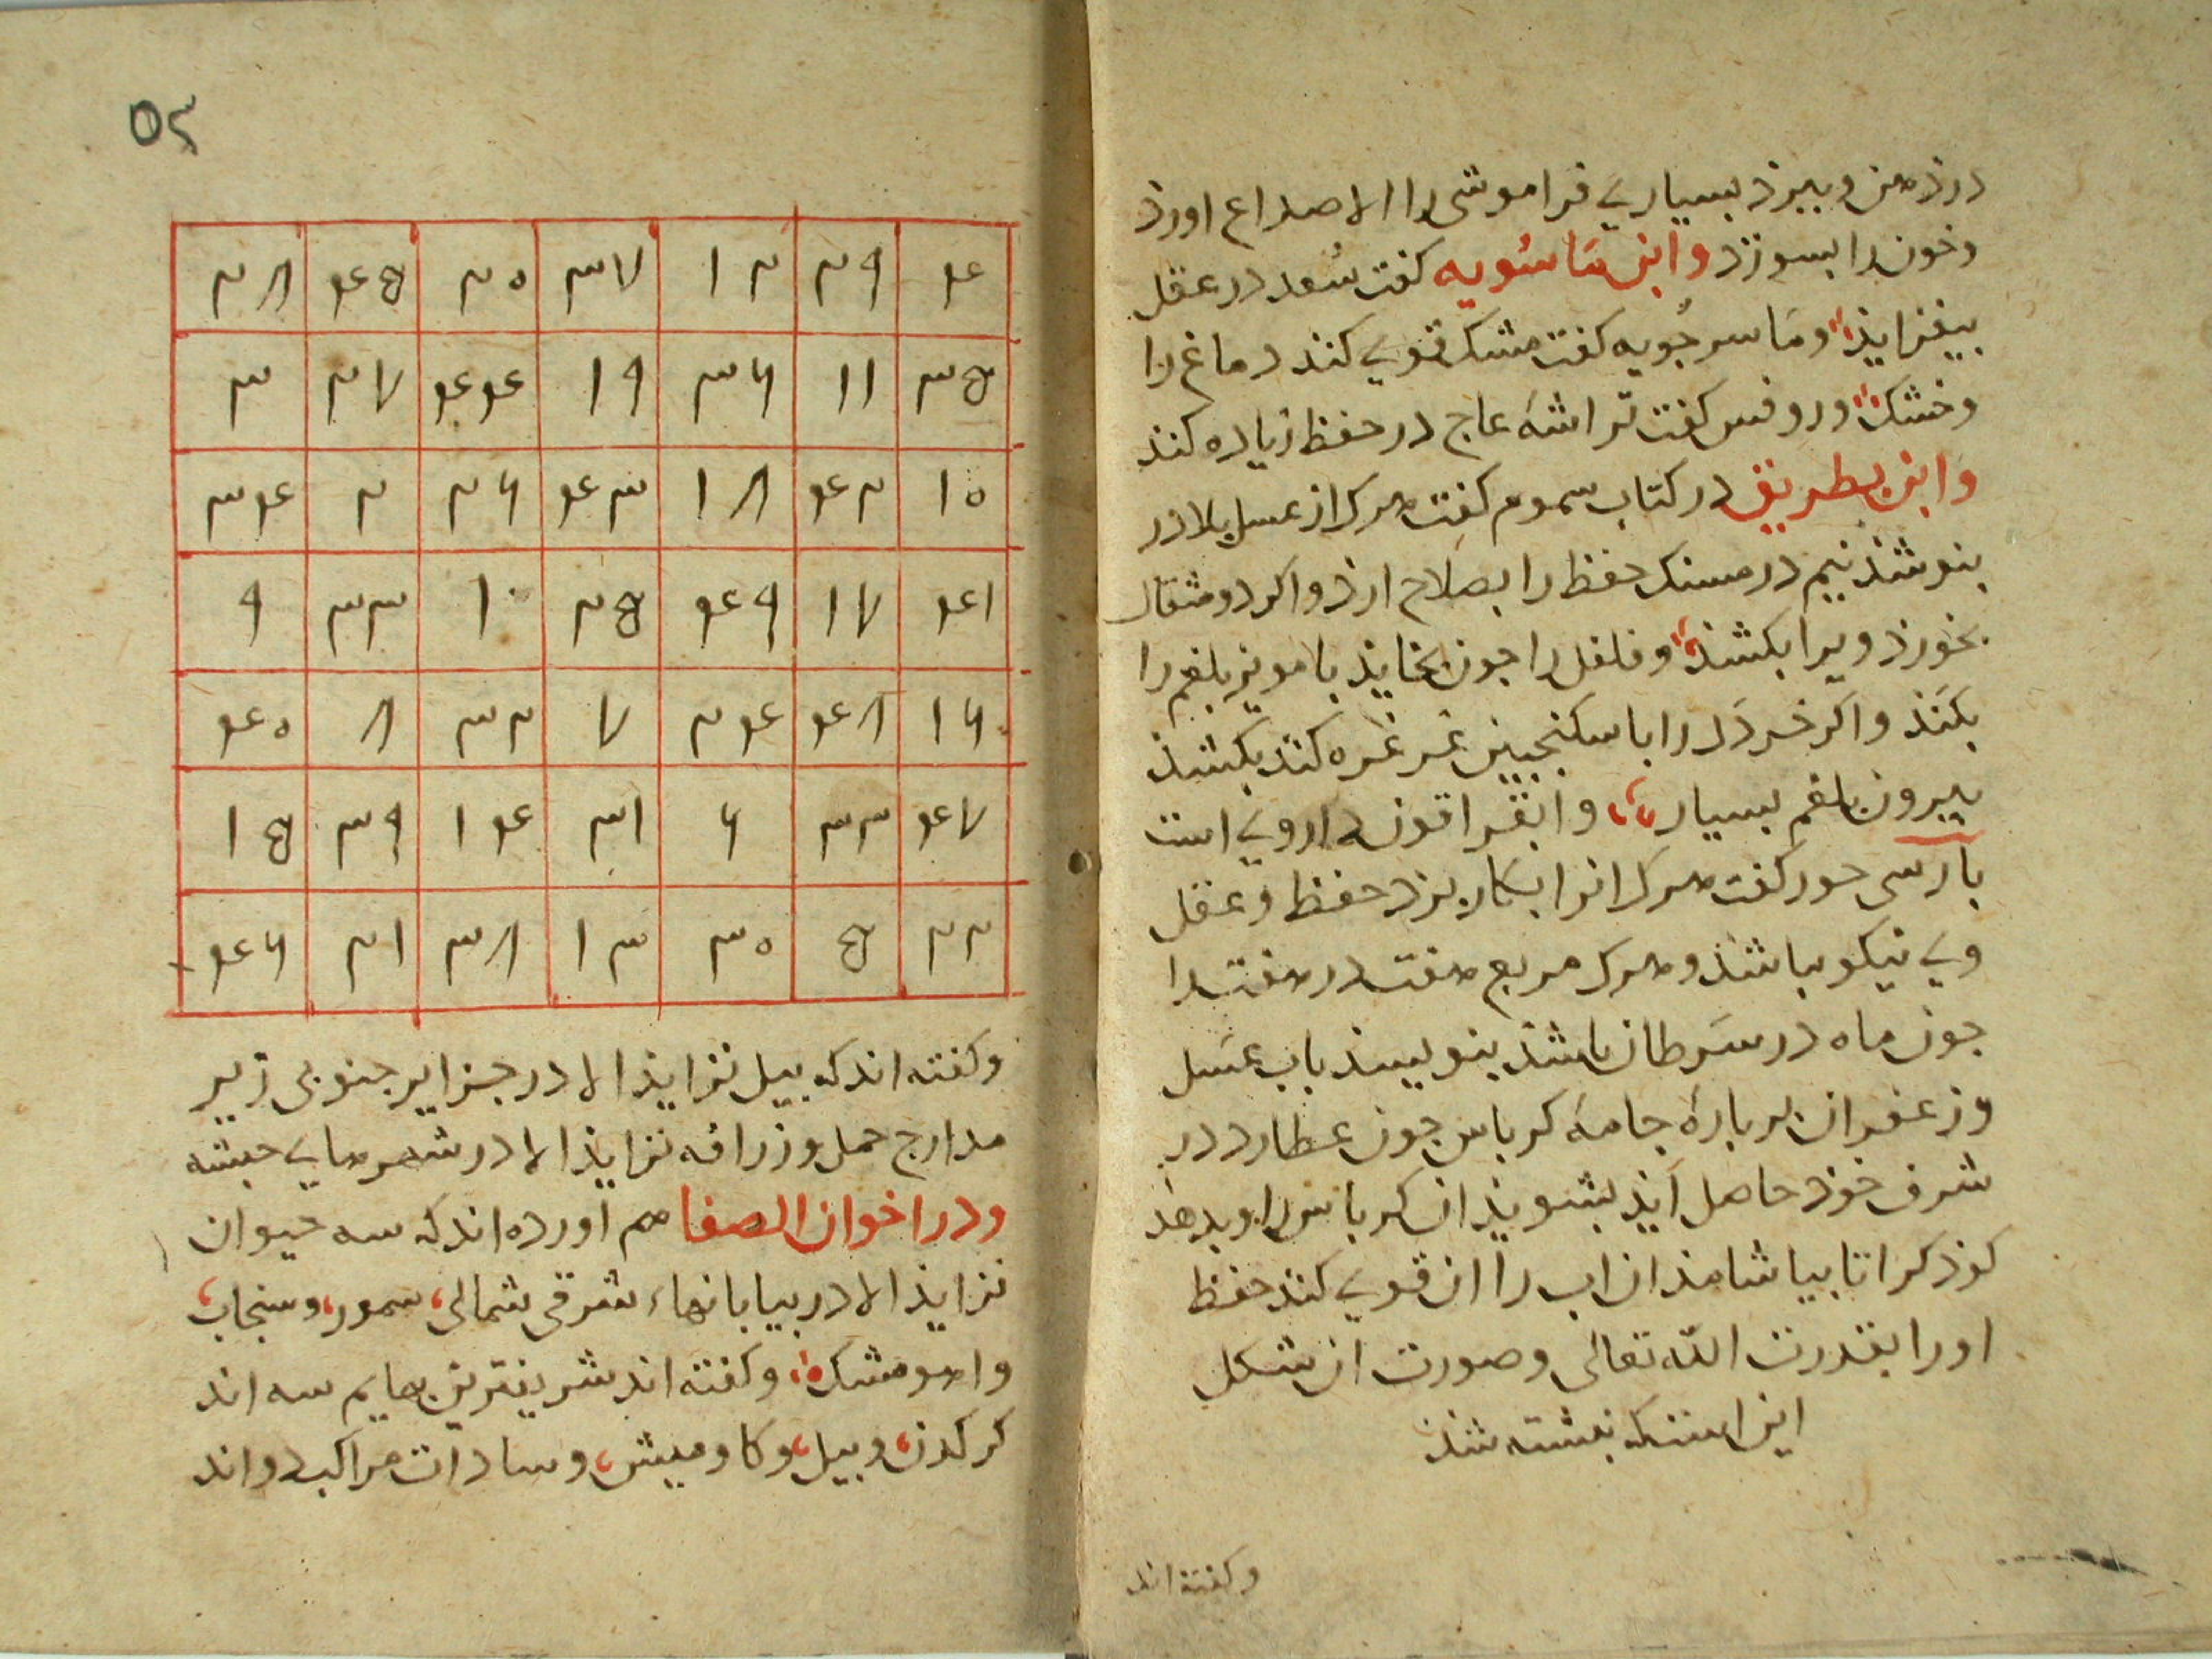 درذهن وببرذ بسیاری فراموشی را الا صداع اورذ
وخون را بسوزد وابن ماسویه کفت سعد در عقل
بیفزایذ وماسرجویه کفت مشک قوی کند دماغ را
وخشک وروفس کفت تراشه عاج در حفظ زیاده کند
وابن بطریق در کتاب سموم کفت هرک از عسل بلادر
بنوشذ نیم درمسنک حفظ را بصلاح ارذ واکر دو مثقال
بخورذ ویرا بکشذ وفلفل را جون بخایذ با مویز بلغم را
بکند واکر خردل را با سکنجبین غرغره کند بکشذ
بیرون بلغم بسیار وانقراقون داروی است
بارسی حور کفت هرک انرا بکار برد حفظ وعقل
وی نیکو باشذ وهرک مربع هفت در هفت را
جون ماه در سرطان باشذ بنویسد باب عسل
وزعفران بر باره جامه کرباس جون عطارد در
شرف خوذ حاصل آیذ بشویذ ان کرباس را وبدهذ
کوذک را تا بیاشامذ ان اب را ان قوی کند حفظ
اورا بقدرت الله تعالی وصورت ان شکل
این است که نبشته شذ
وکفته اند
٥٢
۴ ۲۹ ۱۲ ۳۷ ۲۰ ۴۵ ۲۸
۳۵ ۱۱ ۳۶ ۱۹ ۴۴ ۲۷ ۳
۱۰ ۴۲ ۱۸ ۴۳ ۲۶ ۲ ۳۴
۴۱ ۱۷ ۴۹ ۲۵ ۱ ۳۳ ۹
۱۶ ۴۸ ۲۴ ۷ ۳۲ ۸ ۴۰
۴۷ ۲۳ ۶ ۳۱ ۱۴ ۳۹ ۱۵
۲۲ ۵ ۳۰ ۱۳ ۳۸ ۲۱ ۴۶
وکفته اند که بیل نزایذ الا در جزایر جنوبی زیر
مدارج حمل وزرافه نزایذ الا در شهرهای حبشه
ودر اخوان الصفا هم اورده اند که سه حیوان
نزایذ الا در بیابانهاء شرقی شمالی سمور وسنجاب
واهو مشک وکفته اند شریفترین بهایم سه اند
کرکدن وبیل وکاومیش وسادات مراکب دواند